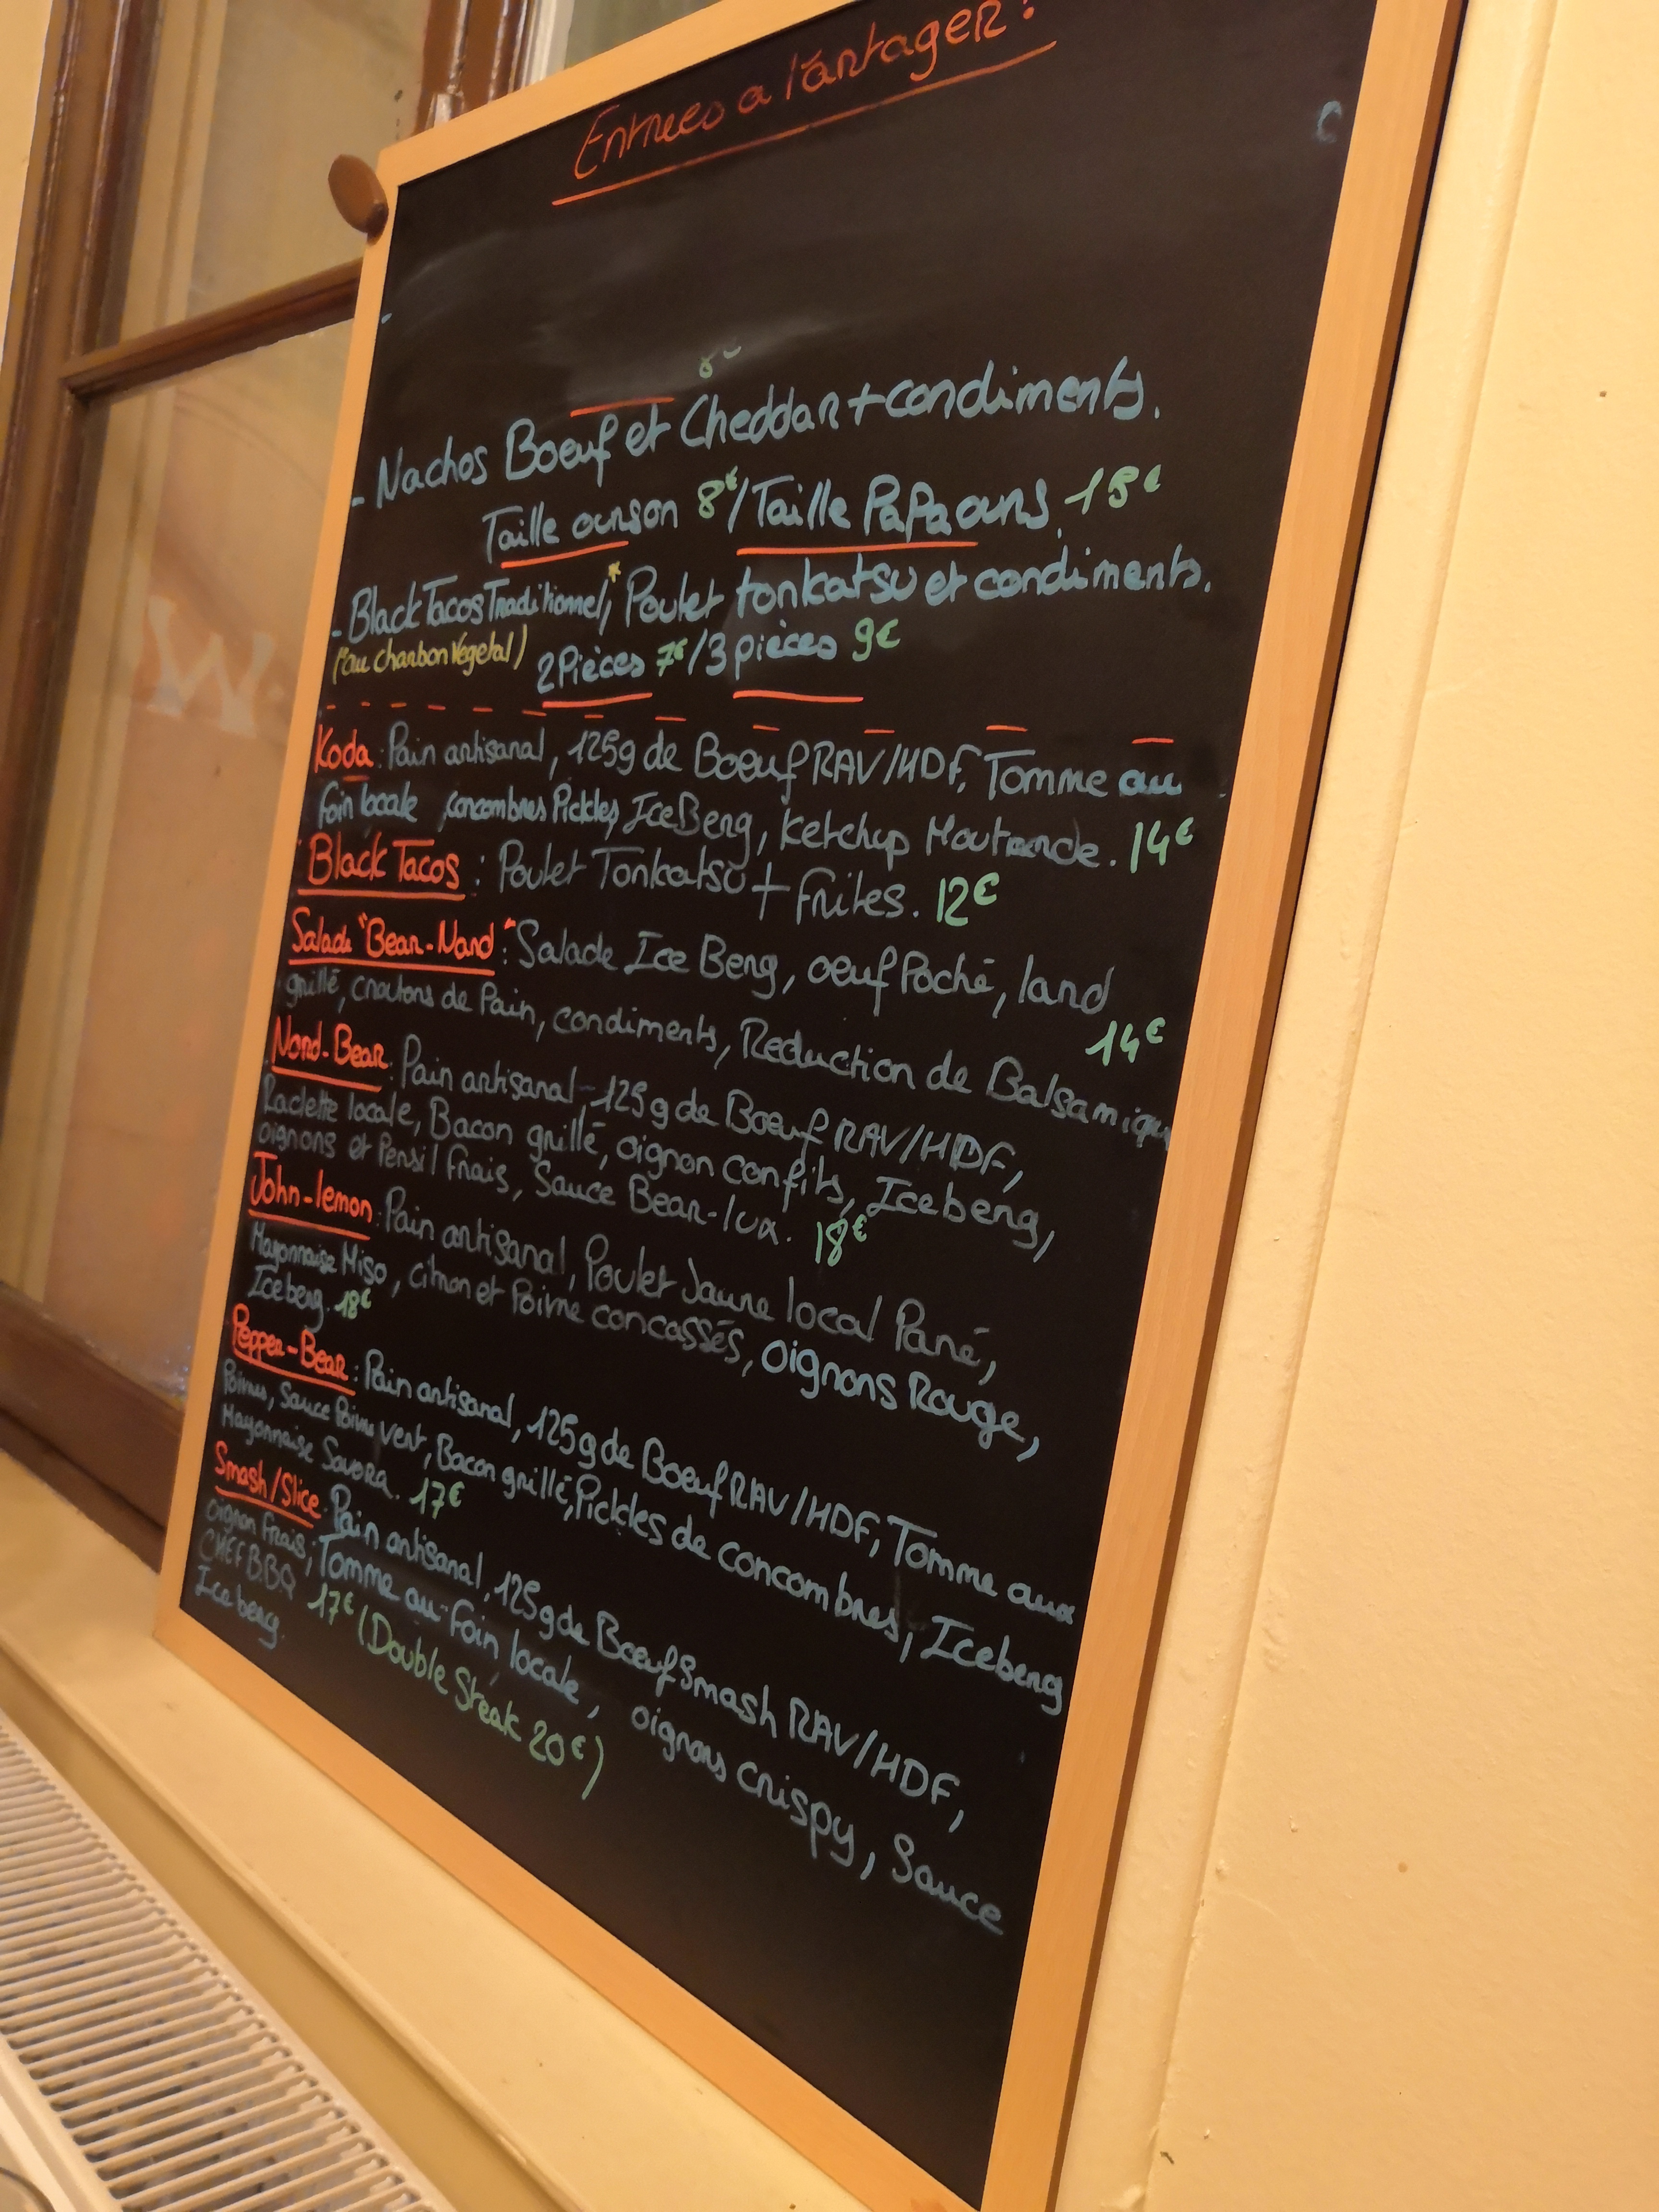 Entrees a Partager :
- Nachos Boeuf et Cheddar + condiments.
Taille ourson 8€ / Taille Papa ours. 15€
- Black Tacos Traditionnel,* Poulet tonkatsu et condiments.
(*au charbon Vegetal) 2 Pièces 7€ / 3 pièces 9€
Koda : Pain artisanal, 125g de Boeuf RAV/HDF, Tomme au
Foin locale, concombres Pickles, IceBerg, Ketchup Moutarde. 14€
Black Tacos : Poulet Tonkatsu + Frites. 12€
Salade "Bear-Nard" : Salade Ice Berg, oeuf Poché, lard
grillé, croutons de Pain, condiments, Reduction de Balsamique 14€
Nord-Bear : Pain artisanal - 125g de Boeuf RAV/HDF,
Raclette locale, Bacon grillé, oignon confits, Iceberg,
oignons et Persil Frais, Sauce Bear-lux. 18€
John-lemon : Pain artisanal, Poulet Jaune local Pané,
Mayonnaise Miso, citron et Poivre concassés, oignons Rouge,
Iceberg. 18€
Pepper-Bear : Pain artisanal, 125g de Boeuf RAV/HDF, Tomme aux
Poivres, Sauce Poivre vert, Bacon grillé, Pickles de concombres, Iceberg
Mayonnaise Savora. 17€
Smash/Slice : Pain artisanal, 125g de Boeuf Smash RAV/HDF,
oignon Frais, Tomme au Foin locale, oignons crispy, Sauce
CHEF BBQ 17€ (Double Steak 20€)
Iceberg.